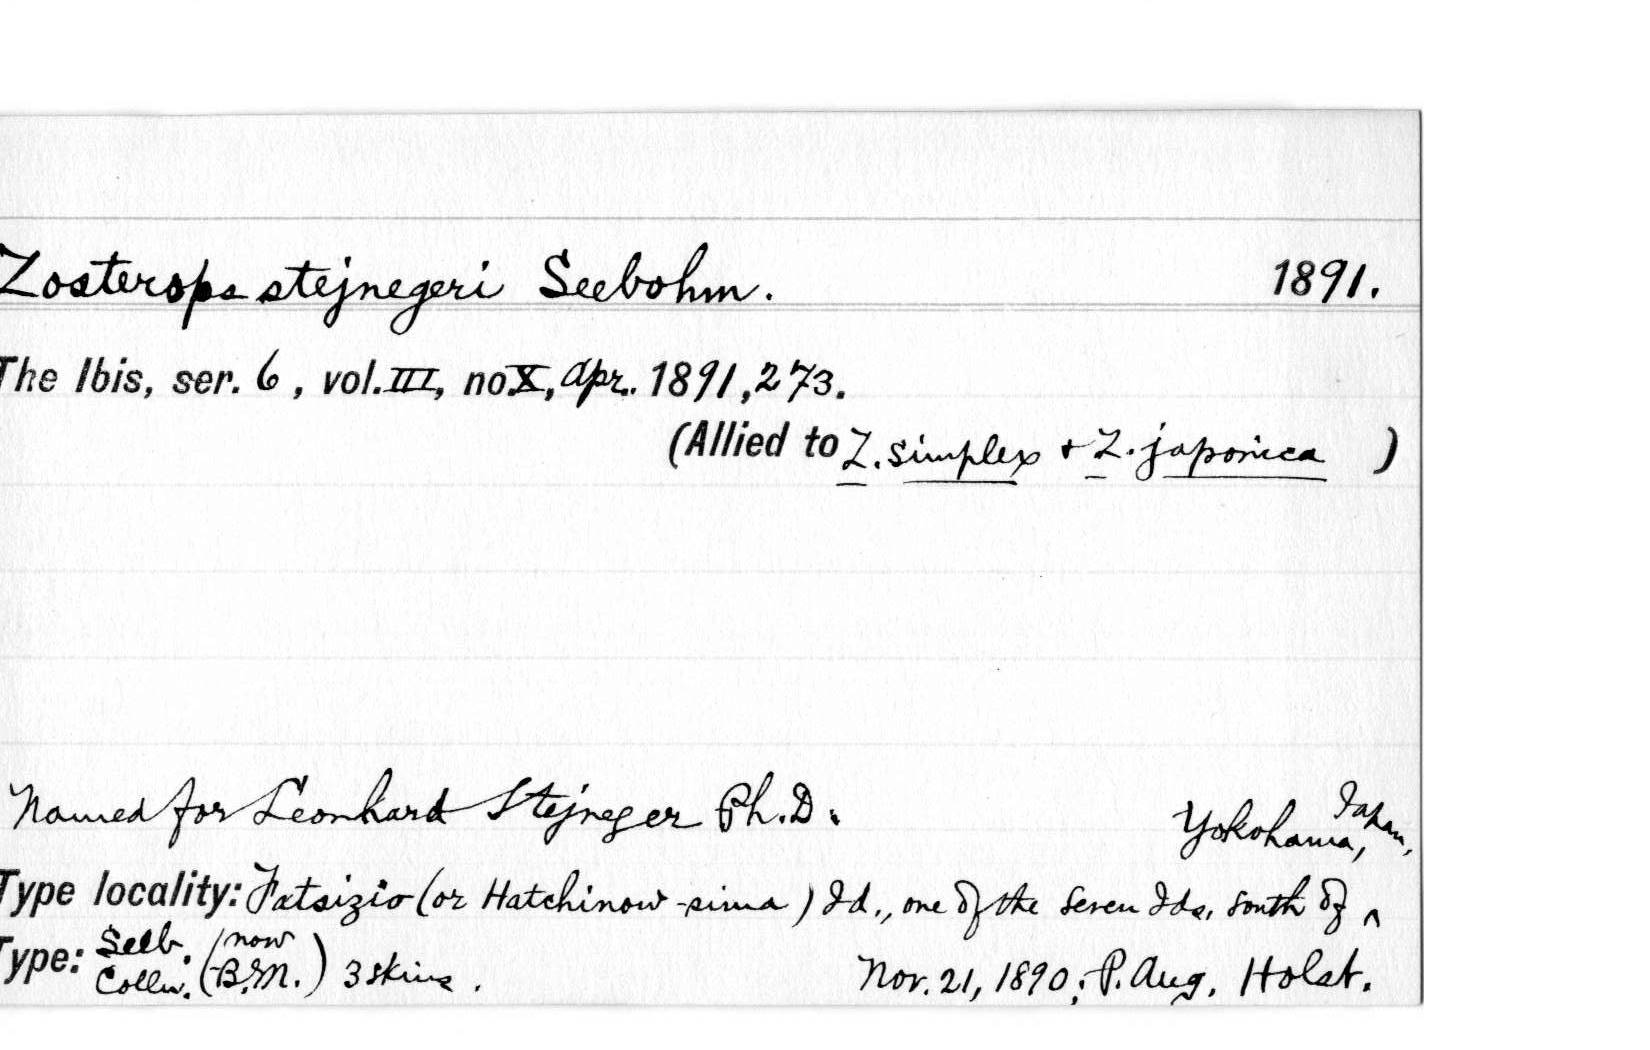 Zosterops stejnegeri Seebohm. 1891.
The Ibis, ser. 6, vol. III, no. X, Apr. 1891, 273.
(Allied to Z. simplex + Z. japonica )
Named for Leonhard Stejneger Ph.D.
Yokohama, Japan,
Type locality: Fatsizio (or Hatchinow-sima) Id., one of the Seven Ids. south of ^
Type: Seeb. Colln. (now B.M.) 3 skins. Nov. 21, 1890; P. Aug. Holst.